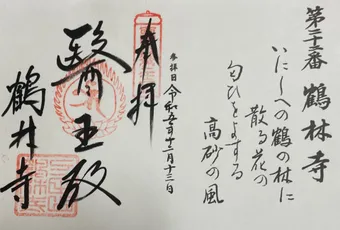 第二十番 鶴林寺
いにしへの鶴の林に
散る花の
匂ひをよする
高砂の風
奉拝
参拝日 令和五年十二月十三日
醫王殿
鶴林寺